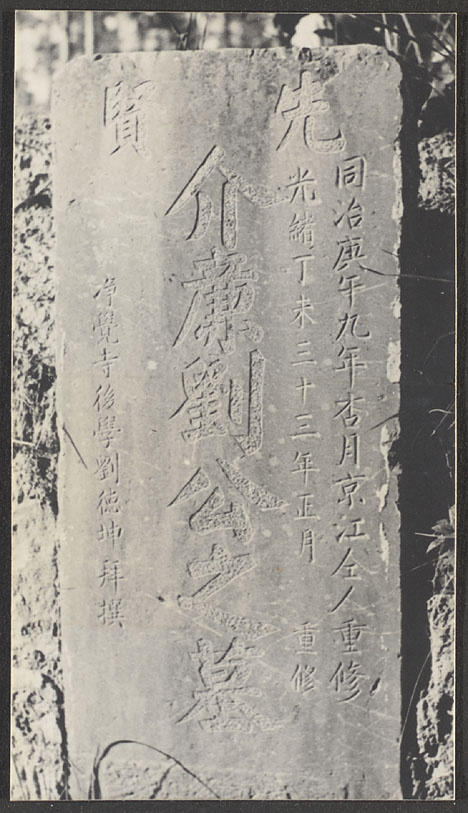 先賢
同治庚午九年杏月京江仝人重修
光緒丁未三十三年正月重修
介廉劉公之墓
净覺寺後學劉德坤拜撰